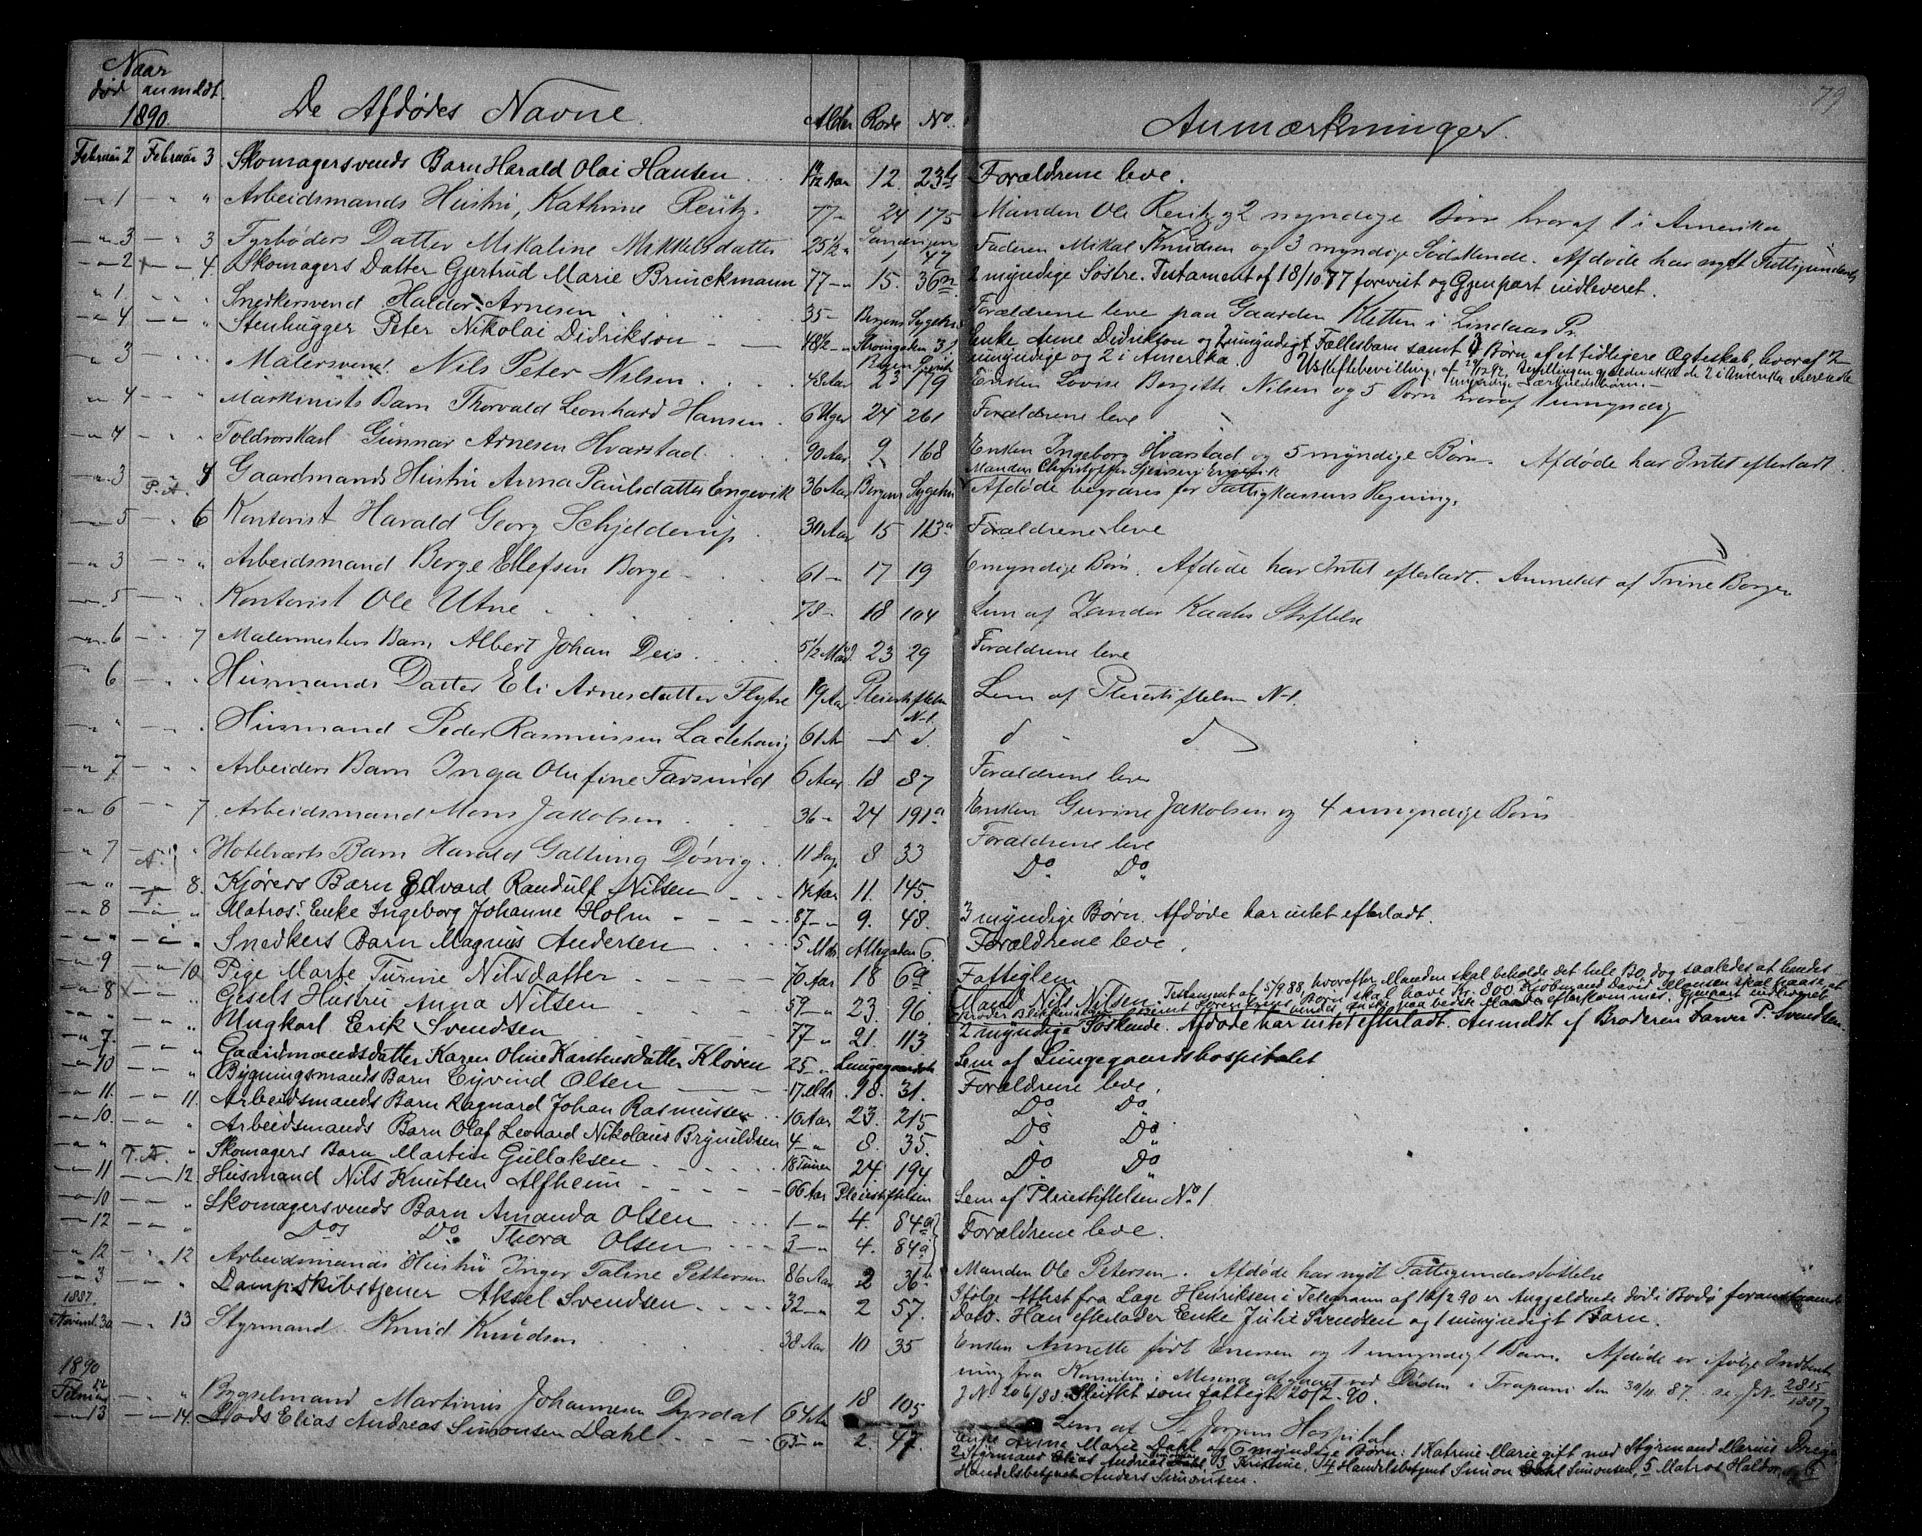 79
Naar
død anmeldt. De Afdødes Navne. Alder Rode No. Anmærkninger.
1890.
Februar 2 Februar 3 Skomagersvends Barn Harald Olai Hansen Aar 12. 23 Forældrene leve.
1 " Arbeidsmands Hustru, Kathrine Reutz. 77 24 175 Manden Ole Reutz og 2 myndige Børn hvoraf 1 i Amerika
3 3 Fyrbøders Datter Mikaline Mikkelsdatter 25 1/2 Faderen Mikal Knudsen og 3 myndige Sødskende. Afdøde har nydt
2 4 Skomagers Datter Gjertrud Marie Brunckmann 77 15. 36 2 myndige Søstre. Testament af 18/10 77 forevist og Gjenpart indleveret.
1 " Snedkersvend Haldor Arnesen 35 Bergens Sygehus Forældrene leve paa Gaarden Kletten i Lindaas Pr.
4 " Stenhugger Peter Nikolai Didriksen 48 1/2 Strømgaden 31 Enke Anne Didriksen og umyndigt Fællesbarn samt Børn af et tidligere Ægteskab, hvoraf 2
umyndige og 2 i Amerika.
3 " Malersvend Nils Peter Nilsen 48 Aar 23 179 Enken Lovise Bergitte Nilsen og 5 Børn hvoraf 1 umyndig
4 " Maskinists Barn Thorvald Leonhard Hansen. 6 Uger 24 261 Forældrene leve
4 " Toldrorskarl Gunnar Arnesen Hvarstad 90 Aar 9 168 Enken Ingeborg Hvarstad og 5 myndige Børn. Afdøde har Intet efterladt.
3 P.A. 4 Gaardmands Hustru Anna Paulsdatter Engevik 36 Aar Bergens Sygehus Afdøde begraves for Fattigkassens Regning.
5 6 Kontorist Harald Georg Schjelderup 30 Aar 15 113a Forældrene leve
3 " Arbeidsmand Børge Ellefsen Børge 61 17 19 6 myndige Børn. Afdøde har Intet efterladt. Anmeldt af Trine Børge
5 " Kontorist Ole Utne 78 18 104 Lem af Zander Kaaes Stiftelse
6 7 Malermesters Barn Albert Johan Deis 5 1/2 Maad. 23 29 Forældrene leve
6 " Husmands Datter Eli Arnesdatter Flytre 19 Aar Pleiestiftelsen N-1. Lem af Pleiestiftelsen N-1.
" " Husmand Peder Rasmussen Ladehaug 61 A d d. d - d
7 " Arbeiders Barn Inga Olufine Farsund 6 Aar 18 87 Forældrene leve
6 7 Arbeidsmand Mons Jakobsen 36 24 191a Enken Gurine Jakobsen og 4 umyndige Børn
7 " Hotelværts Barn Harald Galtung Døsvig 11 Dage 8 33 Forældrene leve
" 8. Kjørers Barn Edvard Randulf Nilsen 14 Aar 11. 145. Do Do
8 " Matros: Enke Ingeborg Johanne Holm 87 9. 48. 3 myndige Børn. Afdøde har intet efterladt.
" " Snedkers Barn Magnus Andersen 5 Mdr Allegaden 6. Forældrene leve.
9 10. Pige Marte Turine Nilsdatter 70 Aar 18 69 Fattiglem
8 " Gjesels Hustru Anna Nilsen 59 23. 96. Mand Nils Nilsen. Testament af 5/9 88, hvorefter Manden skal beholde det hele Bo, dog saaledes at hendes
" " Murkarl Erik Svendsen 77 21. 113 2 myndige Søskende. Afdøde har intet efterladt. Anmeldt af Broderen P. Svendsen.
7. " Gaardmandsdatter Karen Oline Karstensdatter Kløven 25 Lungegaardsh. Lem af Lungegaardshospitalet
10 " Bygningsmands Barn Eyvind Olsen 17 Mdr. 18. 31. Forældrene leve.
11. 11. Arbeidsmands Barn Ragnard Johan Rasmussen 10 Aar 23. 215 Do Do
10. " Arbeidsmands Barn Olaf Leonard Nikolaus Brynildsen 4 8. 35. Do Do
" T.A. " Skomagers Barn Martin Gullaksen 18 Timer 24. 194 Do Do
11 12. Husmand Nils Knutsen Alfheim 66 Aar Pleiestiftelsen Lem af Pleiestiftelsen No 1
10 " Skomagersvends Barn Amanda Olsen 1 4. 84a Forældrene leve.
12 " Dos Do Thora Olsen 3 4. 84a
12 12 Arbeidsmands Hustru Inger Taline Pettersen 86 Aar 2 36b Manden Ole Petersen. Afdøde har nydt Fattigunderstøttelse
3 " Dampskibstjener Aksel Svendsen 32 2 57. Ifølge Attest fra Lage Henriksen i Telegram af 12/2 90 er Angjældende død i Bodø foranstaaende
Dato. Han efterlader Enke Julie Svendsen og 1 umyndigt Barn.
1887.
Novembr 30 13 Styrmand Knud Knudsen 38 Aar 10 35 Enken Annette født Enersen og 1 umyndigt Barn. Afdøde er ifølge Indberet-
ning fra Konsulen i Messina afgaaet ved Døden i Trapani den 30/11 87. se JN. 2815/1887
JN 206/88. Skiftet som fattigt 20/2 90.
1890
Februar 12 " Bygselmand Martinus Johannesen Dyrdal 64 Aar 18 105 Lem af St. Jørgens Hospital
13 14. Lods Elias Andreas Simonsen Dahl 65 2. 47. Enke Anne Marie Dahl og 6 myndige Børn: 1 Katrine Marie gift med Styrmand Marius
2 Styrmand Elias Andreas Dahl, 3 Kristine, 4 Handelsbetjent Simon Dahl Simonsen, 5 Matros Haldor, og 6
Handelsbetjent Anders Simonsen.